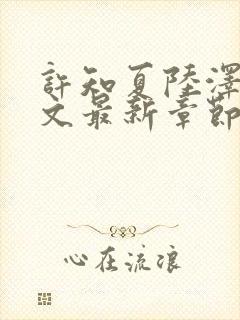 許知夏陸澤
文最新章節
心在流浪